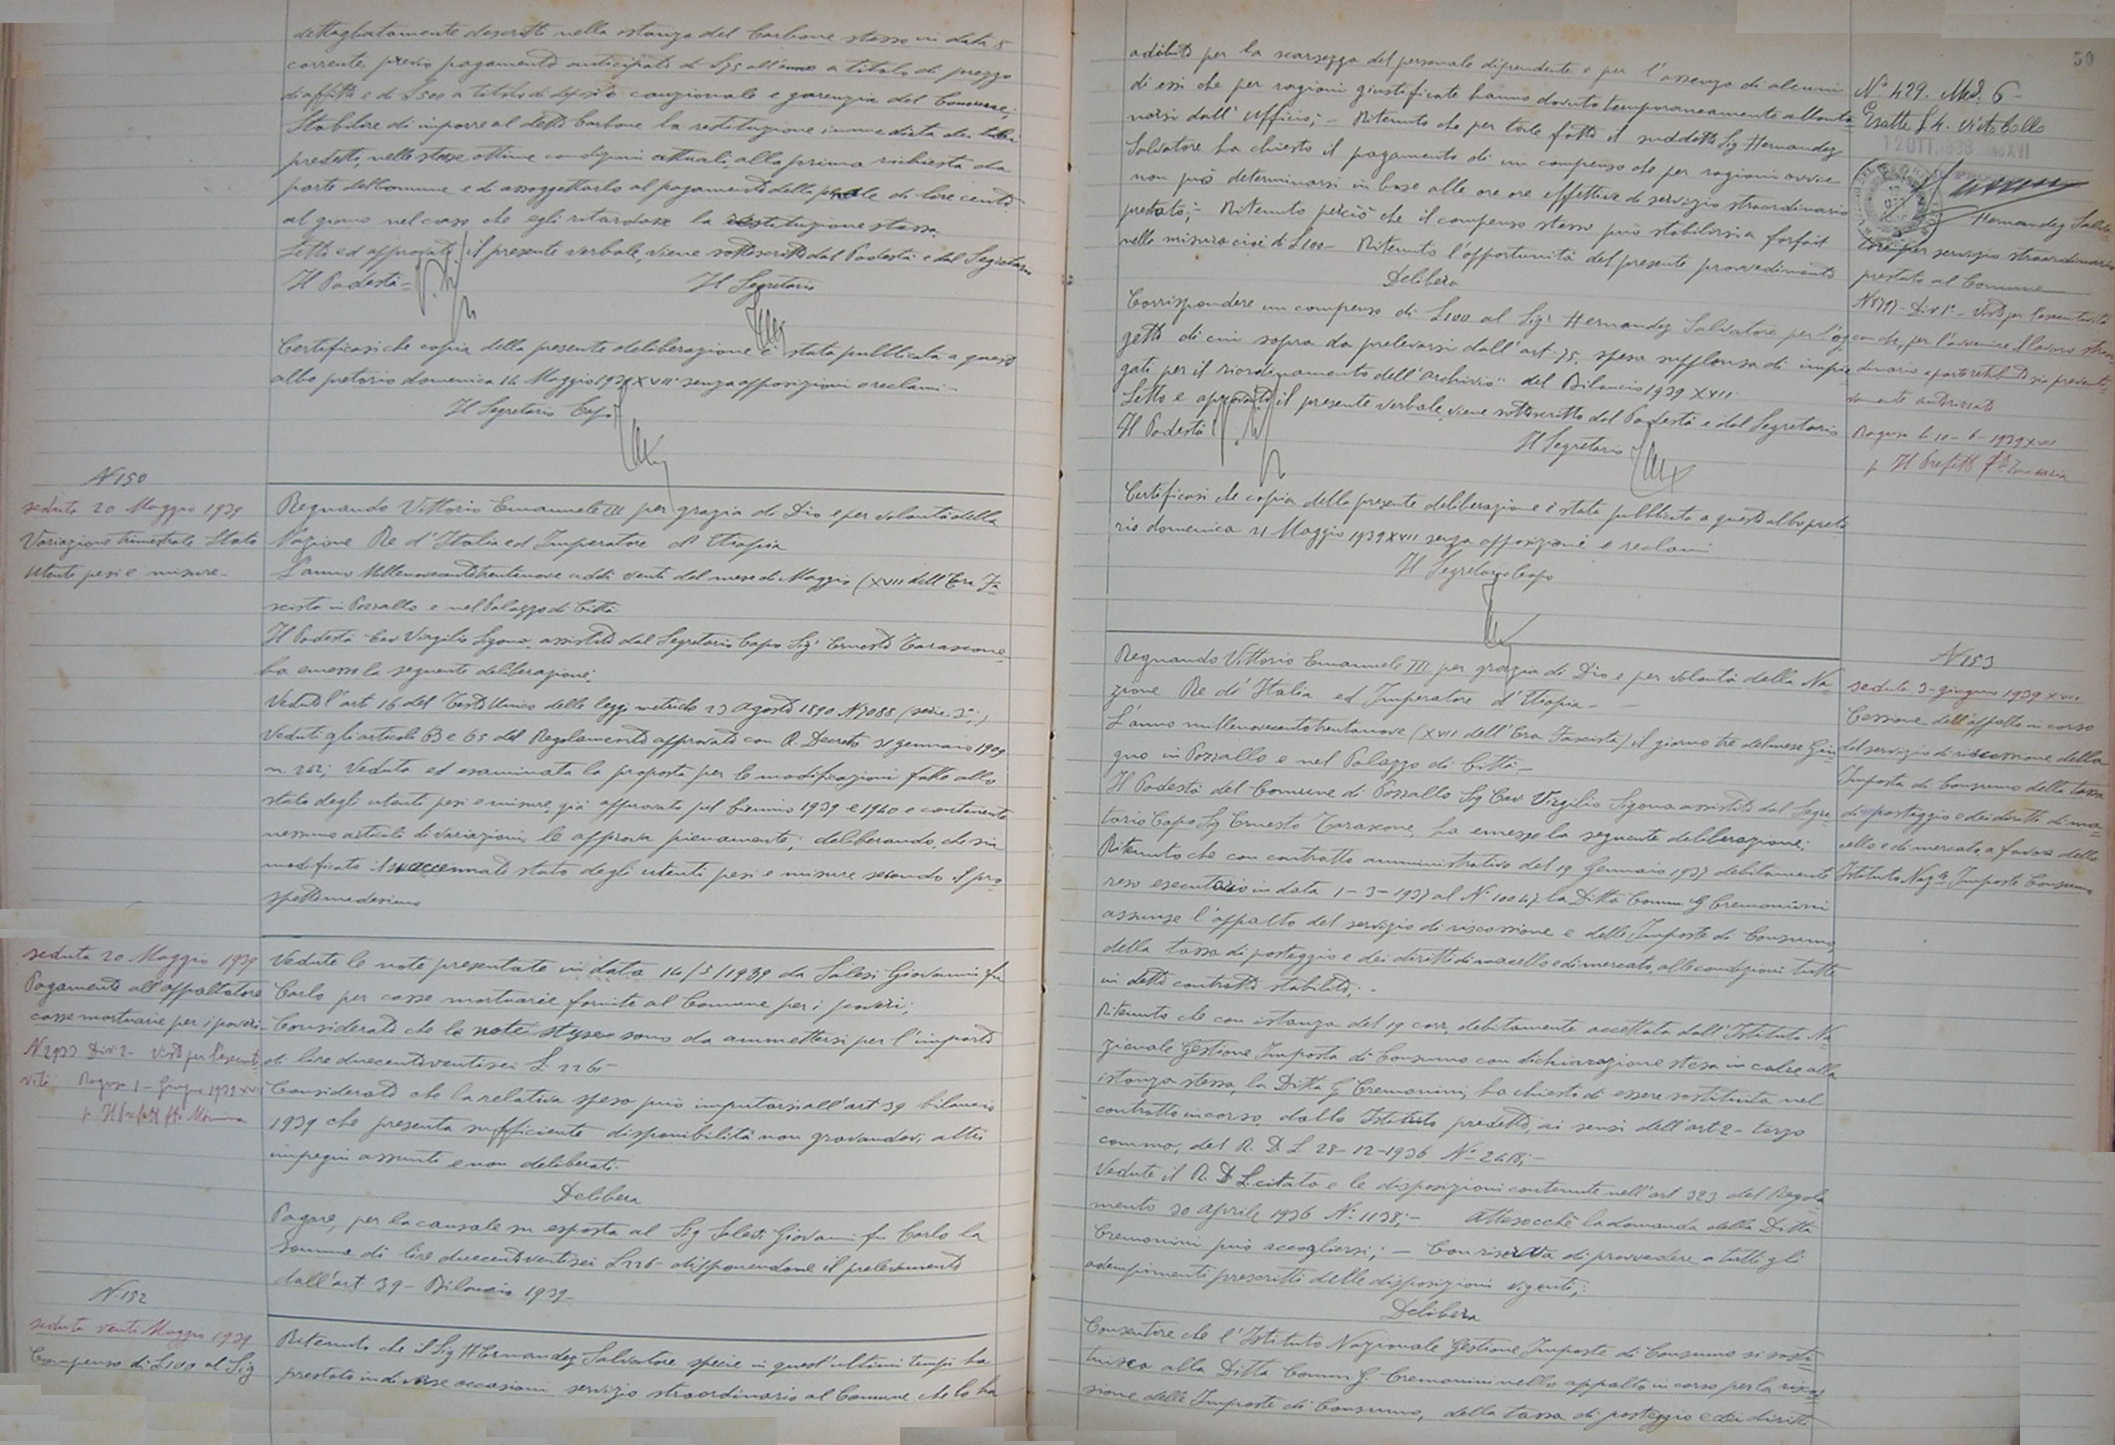 dettagliatamente descritti nella istanza del Carbone stesso in data 8
corrente, previo pagamento anticipato di £75 all'anno a titolo di prezzo
di affitto e di £500 a titolo di deposito cauzionale e garenzia del Comune;
Stabilire di imporre al detto Carbone la restituzione immediata dei
predetti, nelle stesse ottime condizioni attuali, alla prima richiesta da
parte del Comune e di assoggettarlo al pagamento della penale di lire cento
al giorno nel caso che egli ritardasse la restituzione stessa.
Letto ed approvato il presente verbale, viene sottoscritto dal Podestà e dal Segretario
Il Podestà = Il Segretario
Certificasi che copia della presente deliberazione è stata pubblicata a questo
albo pretorio domenica 14 Maggio 1939 XVII senza opposizioni o reclami -
Il Segretario Capo
N 150
seduta 20 Maggio 1939
Variazione trimestrale Stato
utenti pesi e misure -
Regnando Vittorio Emanuele III per grazia di Dio e per volontà della
Nazione Re d'Italia ed Imperatore d'Etiopia
L'anno Millenovecentotrentanove addì venti del mese di Maggio (XVII dell'Era Fa-
scista in Pozzallo e nel Palazzo di Città
Il Podestà Cav Virgilio Sigona, assistito dal Segretario Capo Sig. Ernesto Tarascone
ha emesso la seguente deliberazione;
Veduto l'art 16 del Testo Unico delle leggi metriche 23 agosto 1890 N 7088 (serie 3ª;)
Veduti gli articoli 63 e 65 del Regolamento approvato con R. Decreto 31 gennaio 1909
n. 242; Veduta ed esaminata la proposta per le modificazioni fatte allo
stato degli utenti pesi e misure, già approvato pel biennio 1939 e 1940 e contenente
nessun articoli di variazioni, le approva pienamente; deliberando, che sia
modificato il suaccennato stato degli utenti pesi e misure secondo il pro
spetto medesimo
seduta 20 Maggio 1939
Pagamento all'appaltatore
casse mortuarie per i poveri -
N 2933 Div 2 - Visto per l'esecuti
vità Ragusa 1 - Giugno 1939 XVII
p. Il Prefetto
Vedute le note presentate in data 14/5/1939 da Salesi Giovanni fu
Carlo per casse mortuarie fornite al Comune per i poveri;
Considerato che la note stesse sono da ammettersi per l'importo
di lire duecentoventisei £ 226 -
Considerato che la relativa spesa può imputarsi all'art 39 bilancio
1939 che presenta sufficiente disponibilità non gravandovi altri
impegni assunti e non deliberati.
Delibera
Pagare, per la causale su esposta al Sig Salesi Giovanni fu Carlo la
somma di lire duecentoventisei £ 226 - disponendone il prelevamento
dall'art 39 - Bilancio 1939 -
N. 152
seduta venti Maggio 1939
Compenso di £100 al Sig
Ritenuto che il Sig Hernandez Salvatore specie in quest'ultimi tempi ha
prestato in diverse occasioni servizio straordinario al Comune che lo ha
50
adibito per la scarsezza del personale dipendente e per l'assenza di alcuni
di essi che per ragioni giustificate hanno dovuto temporaneamente allonta-
narsi dall'ufficio; - Ritenuto che per tale fatto il suddetto Sig Hernandez
Salvatore ha chiesto il pagamento di un compenso che per ragioni ovvie
non può determinarsi in base alle ore ore effettive di servizio straordinario
prestato; - Ritenuto perciò che il compenso stesso può stabilirsi a forfait
nella misura cioè di £100 - Ritenuto l'opportunità del presente provvedimento
Delibera
Corrispondere un compenso di £100 al Sig. Hernandez Salvatore per l'og
getto di cui sopra da prelevarsi dall'art. 75. spesa di impie
gati per il riordinamento dell'archivio" del Bilancio 1939 XVII
Letto e approvato il presente verbale, viene sottoscritto dal Podestà e dal Segretario
Il Podestà Il Segretario
Certificasi che copia della presente deliberazione è stata pubblicata a questo albo preto
rio domenica 21 Maggio 1939 XVII senza opposizioni e reclami
Il Segretario Capo
N° 429. Mod. 6
Esatte £ 4.
12 OTT. 1938 ANNO XVI
Hernandez Salva-
tore per servizio straordinario
prestato al Comune
Div 1ª - Visto per l'esecutività
con che, per l'avvenire il lavoro straor
dinario a parte retribuito sia preventi-
vamente autorizzato
Ragusa li 10 - 6 - 1939 XVII
p. Il Prefetto
N 153
seduta 3 - giugno 1939 XVII
Cessione dell'appalto in corso
del servizio di riscossione della
Imposta di Consumo della tassa
di posteggio e dei diritti di ma-
cello e di mercato, a favore dello
Istituto Naz.le Imposte Consumo
Regnando Vittorio Emanuele III per grazia di Dio e per volontà della Na-
zione Re d'Italia ed Imperatore d'Etiopia -
L'anno millenovecentotrentanove (XVII dell'Era Fascista) il giorno tre del mese Giu-
gno in Pozzallo e nel Palazzo di Città -
Il Podestà del Comune di Pozzallo Sig Cav Virgilio Sigona assistito dal Segre-
tario Capo Sig Ernesto Tarascone, ha emesso la seguente deliberazione;
Ritenuto che con contratto amministrativo del 19 Gennaio 1937 debitamente
reso esecutorio in data 1 - 3 - 1937 al N. 10047 la Ditta Comm G Cremonini
assunse l'appalto del servizio di riscossione e delle Imposte di Consumo
della tassa di posteggio e dei diritti di macello e di mercato, alle condizioni tutte
in detto contratto stabilito; -
Ritenuto che con istanza del 19 corr, debitamente accettata dall'Istituto Na
zionale Gestione Imposta di Consumo con dichiarazione stesa in calce alla
istanza stessa, la Ditta G Cremonini, ha chiesto di essere sostituita nel
contratto in corso, dallo Istituto predetto, ai sensi dell'art 2 - terzo
comma, del R. D L 28 - 12 - 1936 N° 2418; -
Vedute il R. D L. citato e le disposizioni contenute nell'art 323 del Regola
mento 30 aprile 1936 N. 1138; - Attesocchè la domanda della Ditta
Cremonini può accogliersi; - Con riserva di provvedere a tutti gli
adempimenti prescritti delle disposizioni vigenti;
Delibera
Consentire che l'Istituto Nazionale Gestione Imposte di Consumo si sosti
tuisca alla Ditta Comm G. Cremonini nello appalto in corso per la riscos
sione delle Imposte di Consumo, della tassa di posteggio e dei diritti